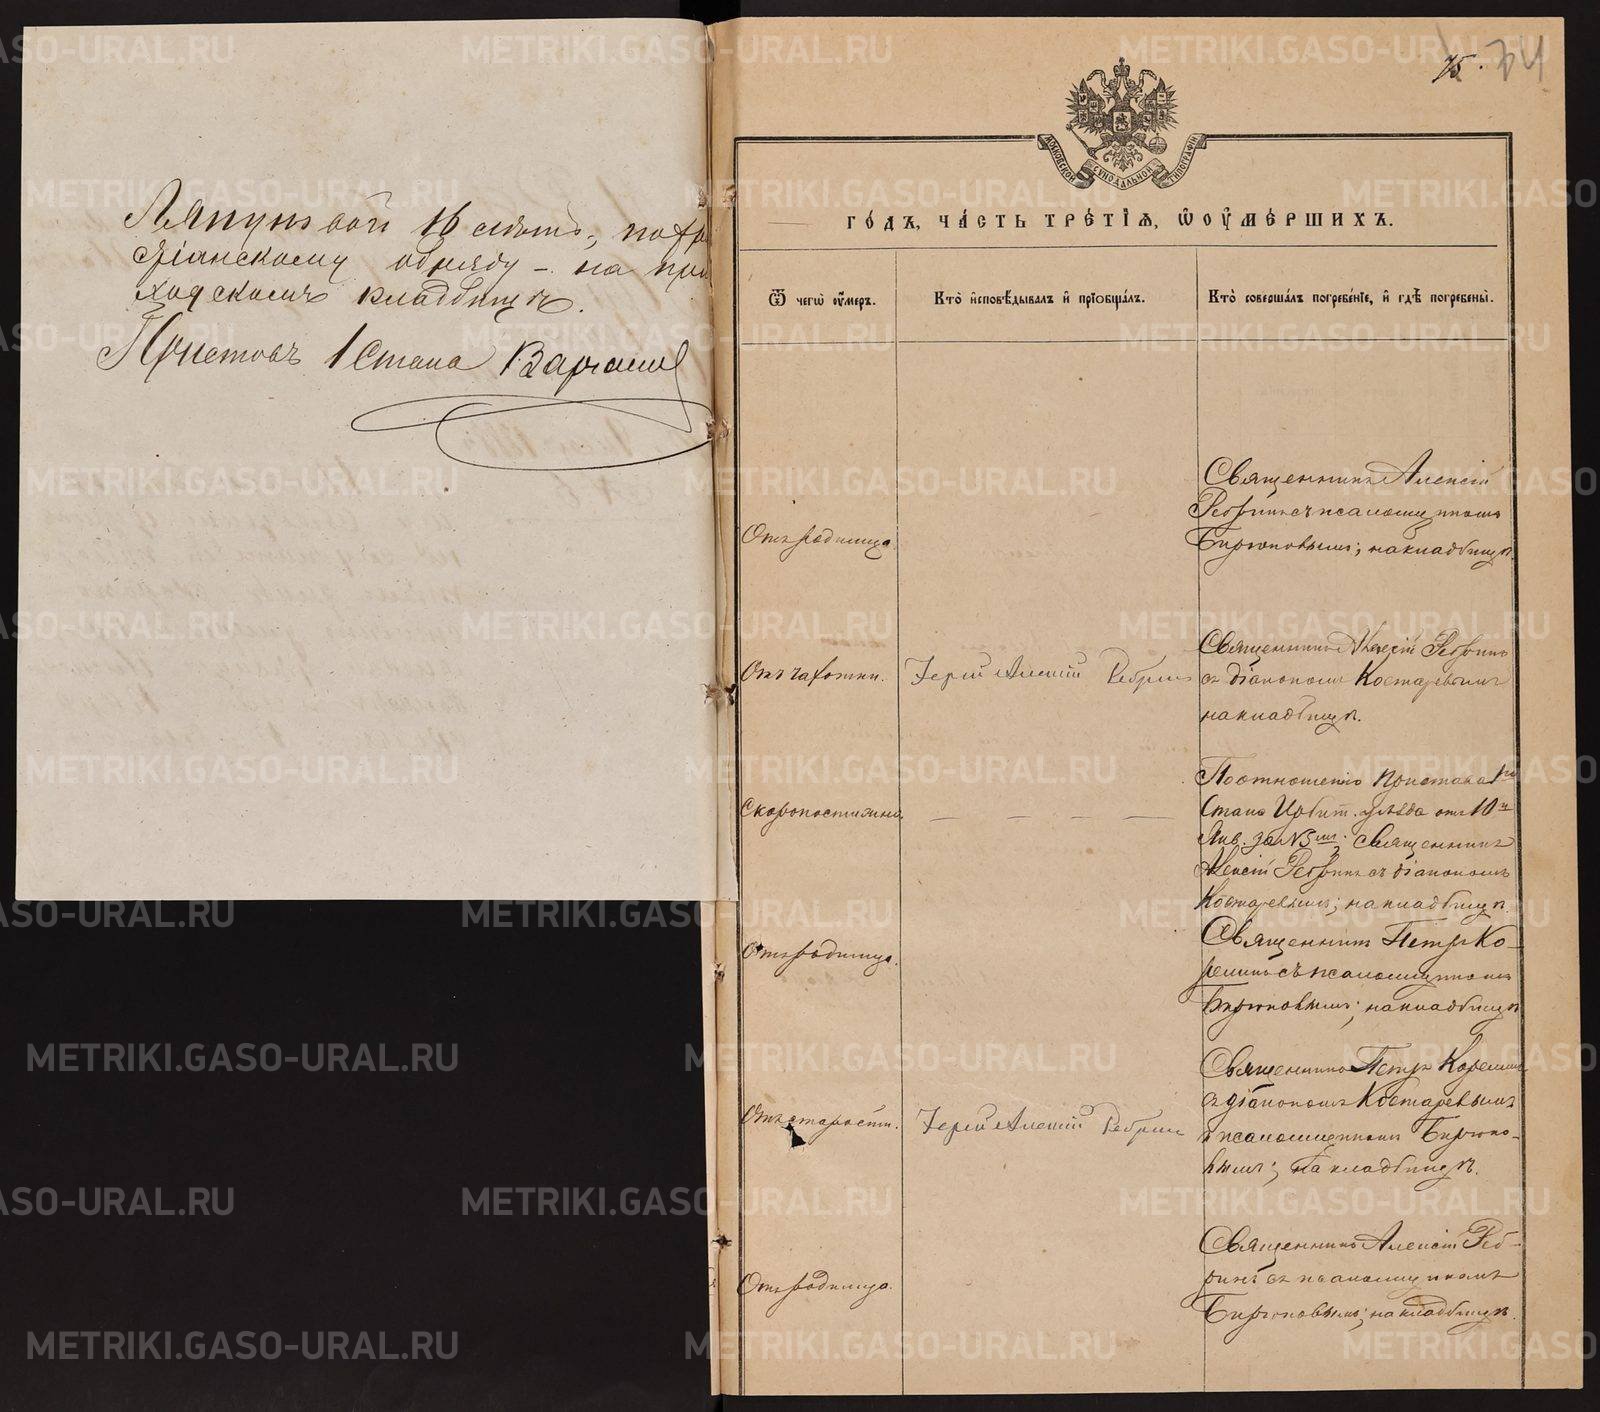 Ляпуновой 16 лѣтъ, по хри
стіанскому обряду – на при
ходскомъ кладбищѣ.
Приставъ 1 Стана
75. 74
МОСКОВСКОЙ СУНОДАЛЬНОЙ ТИПОГРАФІИ
ГОДЪ, ЧАСТЬ ТРЕТІЯ, Ѿ ОУМЕРШИХЪ.
Ѿ чегѡ оумеръ.
Кто исповѣдывалъ и пріобщалъ.
Кто совершалъ погребеніе, и гдѣ погребены.
Отъ родимца.
Священникъ Алексій
Ребринъ съ псаломщикомъ
Бирюковымъ; на кладбищѣ.
Отъ чахотки.
Іерей Алексій Ребринъ
Священникъ Алексій Ребринъ
съ діакономъ Костаревымъ
на кладбищѣ.
Скоропостижно
По отношенію пристава 1го
Стана Ирбит. уѣзда отъ 10го
Янв. за № 5мъ; священникъ
Алексій Ребринъ съ діакономъ
Костаревымъ; на кладбищѣ.
Отъ родимца.
Священникъ Петръ Ко-
релинъ съ псаломщикомъ
Бирюковымъ; на кладбищѣ
Отъ старости.
Іерей Алексій Ребринъ
Священникъ Петръ Корелинъ
съ діакономъ Костаревымъ
и псаломщикомъ Бирюко-
вымъ; на кладбищѣ.
Отъ родимца.
Священникъ Алексій Реб-
ринъ съ псаломщикомъ
Бирюковымъ; на кладбищѣ.
METRIKI.GASO-URAL.RU